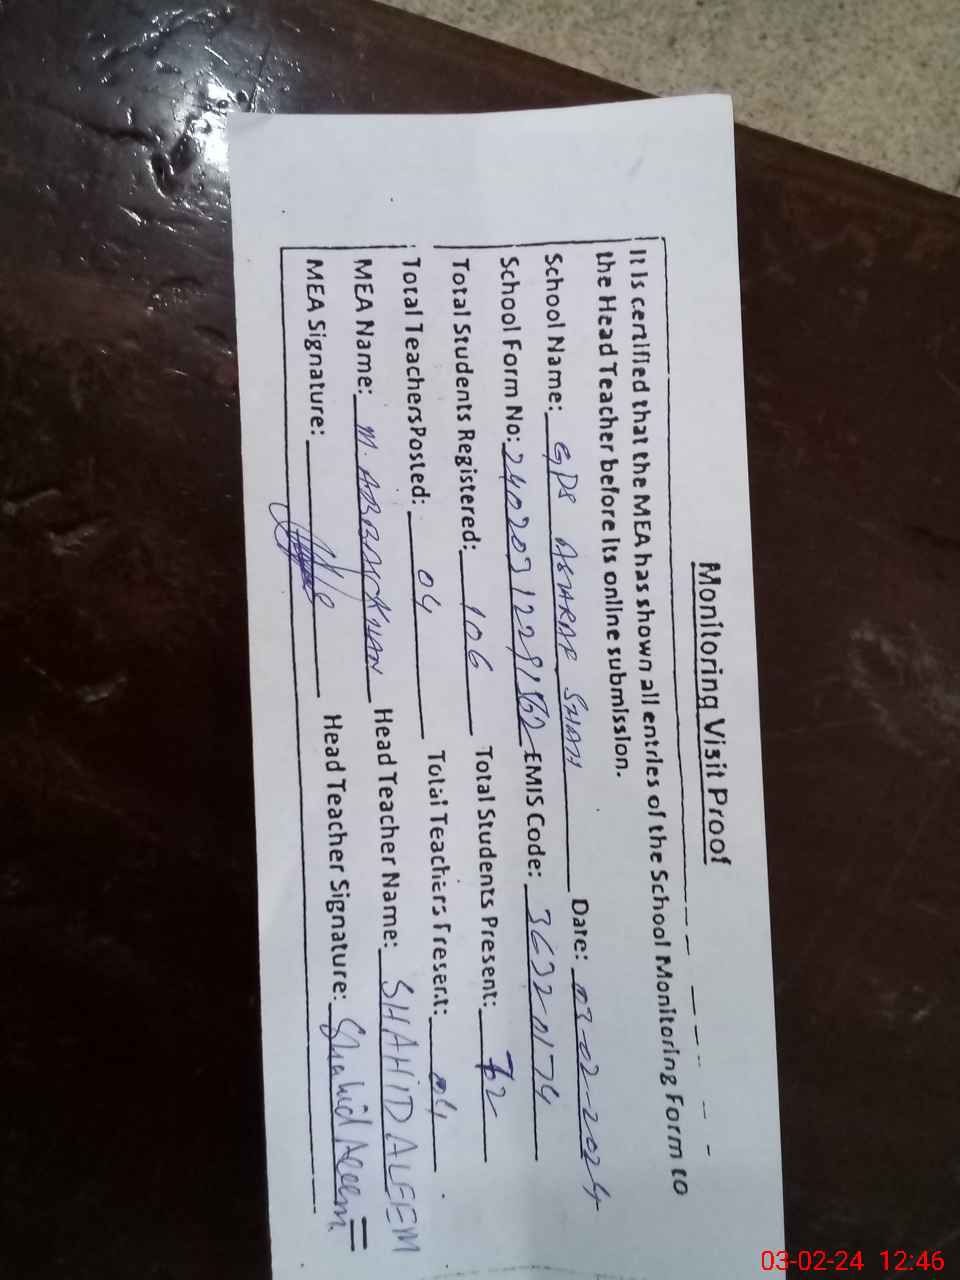 Monitoring Visit Proof
It is certified that the MEA has shown all entries of the School Monitoring Form to
the Head Teacher before its online submission.
School Name: GPS ASHRAF SHAH Date: 03-02-2024
School Form No: EMIS Code: 36320174
Total Students Registered: 106 Total Students Present: 72
Total Teachers Posted: 04 Total Teachers Present: 04
MEA Name: M. ABBAS KHAN Head Teacher Name: SHAHID ALEEM
MEA Signature: Head Teacher Signature: Shahid Aleem
03-02-24 12:46